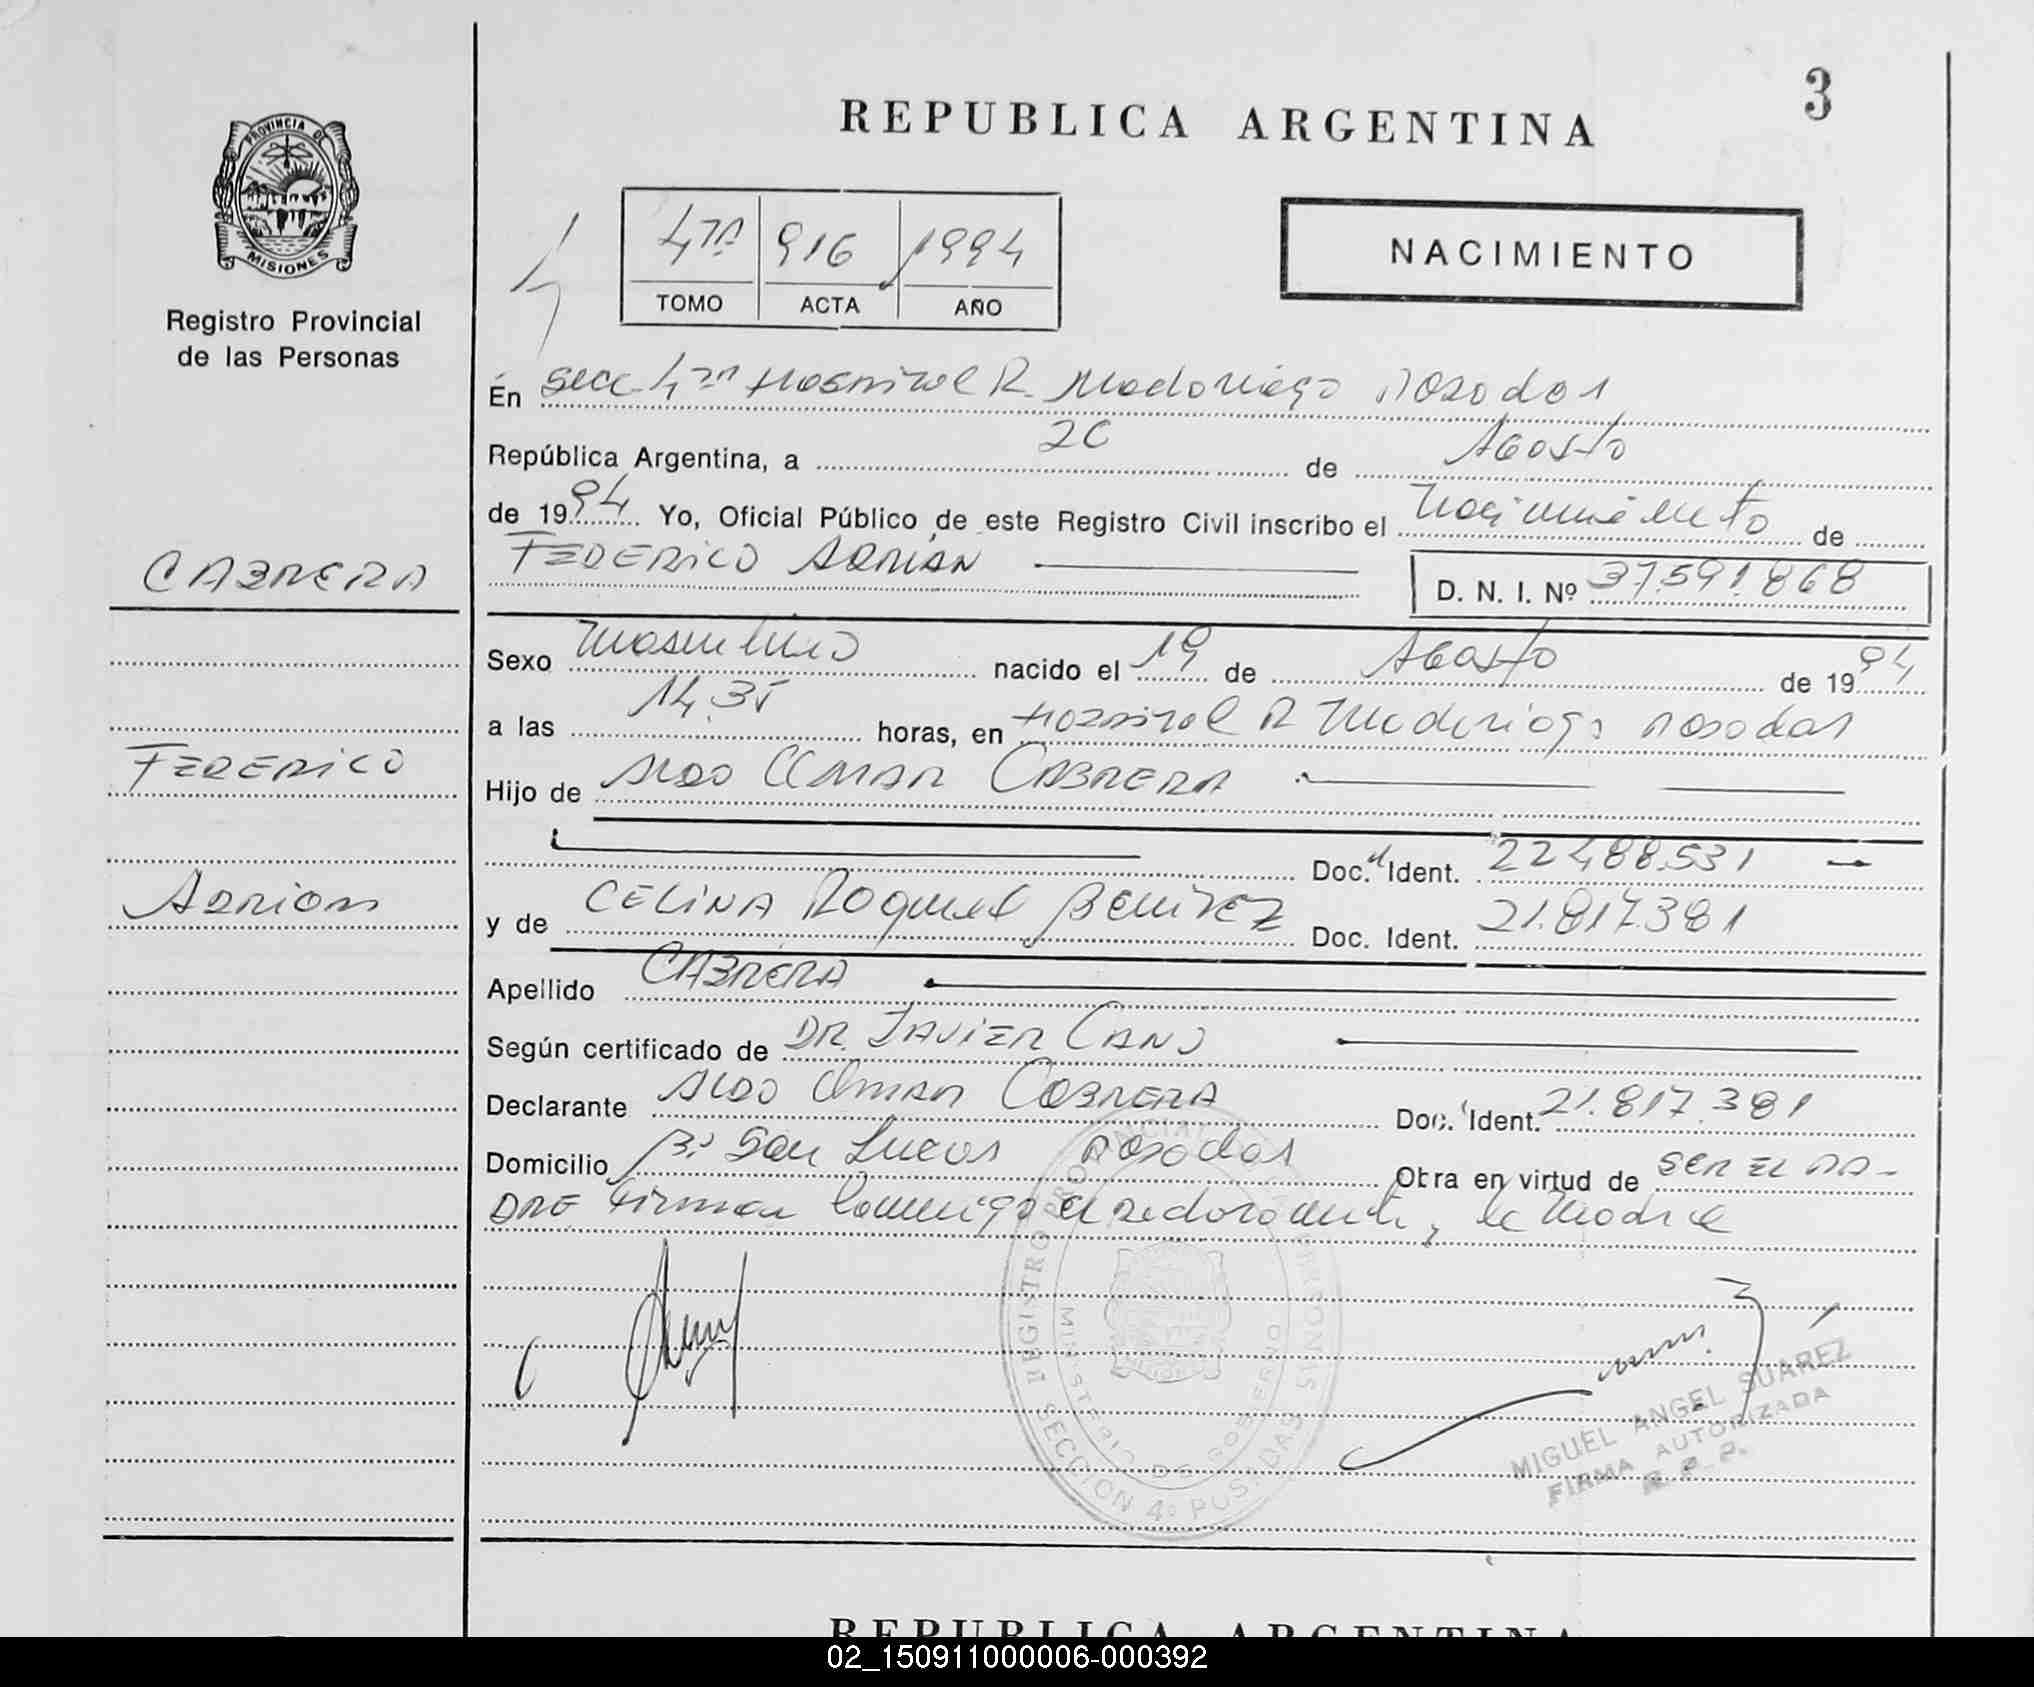 3
REPUBLICA ARGENTINA
PROVINCIA DE
MISIONES
Registro Provincial
de las Personas
4ta 916 1994
TOMO ACTA AÑO
NACIMIENTO
En Secc 4ta Hospital R. Madariaga Posadas
República Argentina, a 20 de Agosto
de 1994 Yo, Oficial Público de este Registro Civil inscribo el Nacimiento de
FEDERICO ADRIAN
D. N. I. Nº 37.591.868
CABRERA
Sexo Masculino nacido el 19 de Agosto de 1994
a las 14,35 horas, en Hospital R Madariaga Posadas
FEDERICO
Hijo de ALDO OMAR CABRERA
Doc. Ident. 22488.531
ADRIAN
y de CELINA Raquel BENITEZ Doc. Ident. 21.817.381
Apellido CABRERA
Según certificado de DR. JAVIER CANO
Declarante ALDO OMAR CABRERA Doc. Ident. 21.817.381
Domicilio Bº San Lucas Posadas Obra en virtud de SER EL PA-
DRE Firman Conmigo el Declarante y la Madre
REGISTRO PROVINCIAL DE LAS PERSONAS
MINISTERIO DE GOBIERNO
SECCION 4º POSADAS
MIGUEL ANGEL SUAREZ
FIRMA AUTORIZADA
R. P. P.
REPUBLICA ARGENTINA
02_150911000006-000392